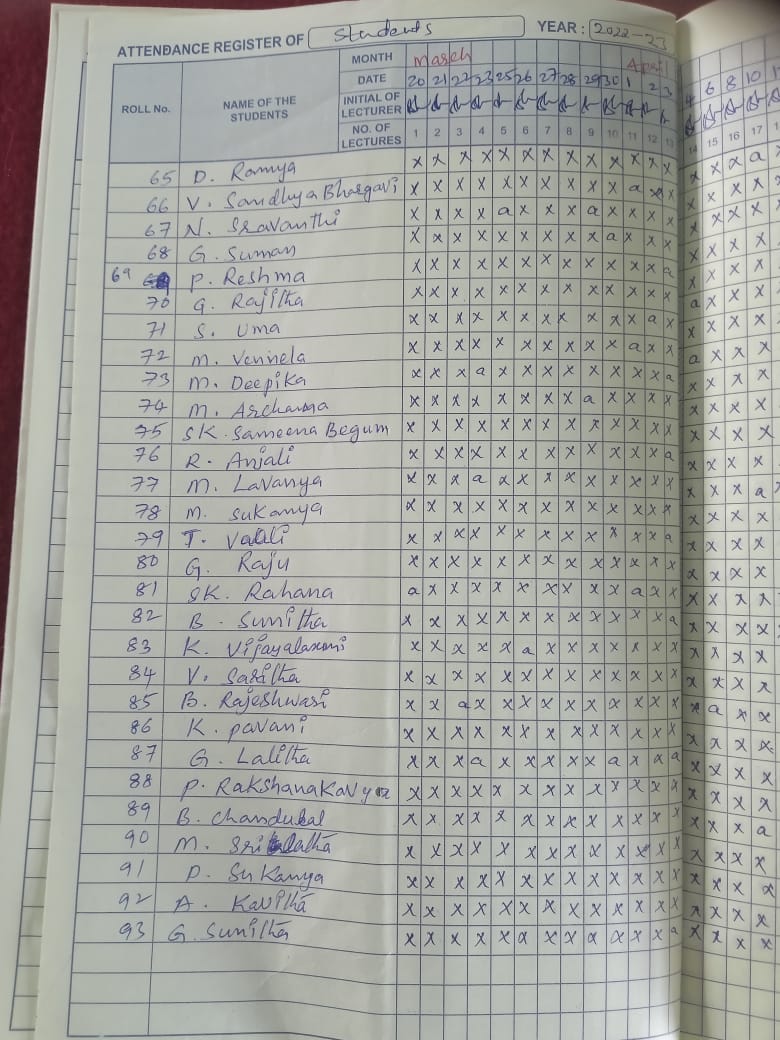 ATTENDANCE REGISTER OF Students YEAR : 2022-23
MONTH March April
DATE 20 21 22 23 25 26 27 28 29 30 1 2 3 4 6 8 10
ROLL No. NAME OF THE STUDENTS INITIAL OF LECTURER
NO. OF LECTURES 1 2 3 4 5 6 7 8 9 10 11 12 13 14 15 16 17
65 D. Ramya x x x x x x x x x x x x x x x x a
66 V. Sandhya Bhargavi x x x x x x x x x x a x x x x x x
67 N. Sravanthi x x x x a x x x a x x x x x x x x
68 G. Suman x x x x x x x x x a x x x x x x x
69 P. Reshma x x x x x x x x x x x x a x x x x
70 G. Rajitha x x x x x x x x x x x x x a x x x
71 S. Uma x x x x x x x x x x x a x x x x x
72 M. Vennela x x x x x x x x x x a x x a x x x
73 M. Deepika x x x a x x x x x x x x a x x x x
74 M. Archana x x x x x x x x a x x x x x x x x
75 SK. Sameena Begum x x x x x x x x x x x x x x x x x
76 R. Anjali x x x x x x x x x x x x a x x x x
77 M. Lavanya x x x a x x x x x x x x x x x x a
78 M. Sukanya x x x x x x x x x x x x x x x x x
79 T. Valli x x x x x x x x x x x x a x x x x
80 G. Raju x x x x x x x x x x x x x x x x x
81 SK. Rahana a x x x x x x x x x a x x x x x x
82 B. Sunitha x x x x x x x x x x x x a x x x x
83 K. Vijayalaxmi x x x x x a x x x x x x x x x x x
84 V. Saritha x x x x x x x x x x x x x x x x x
85 B. Rajeshwari x x a x x x x x x x x x x x a x x
86 K. pavani x x x x x x x x x x x x x x x x x
87 G. Lalitha x x x a x x x x x a x x a x x x x
88 P. RakshanaKavya x x x x x x x x x x x x x x x x x
89 B. Chandukal x x x x x x x x x x x x x x x x a
90 M. Srilatha x x x x x x x x x x x x x x x x x
91 P. Sukanya x x x x x x x x x x x x x x x x x
92 A. Kavitha x x x x x x x x x x x x x x x x x
93 G. Sunitha x x x x x a x x a a x x a x x x x